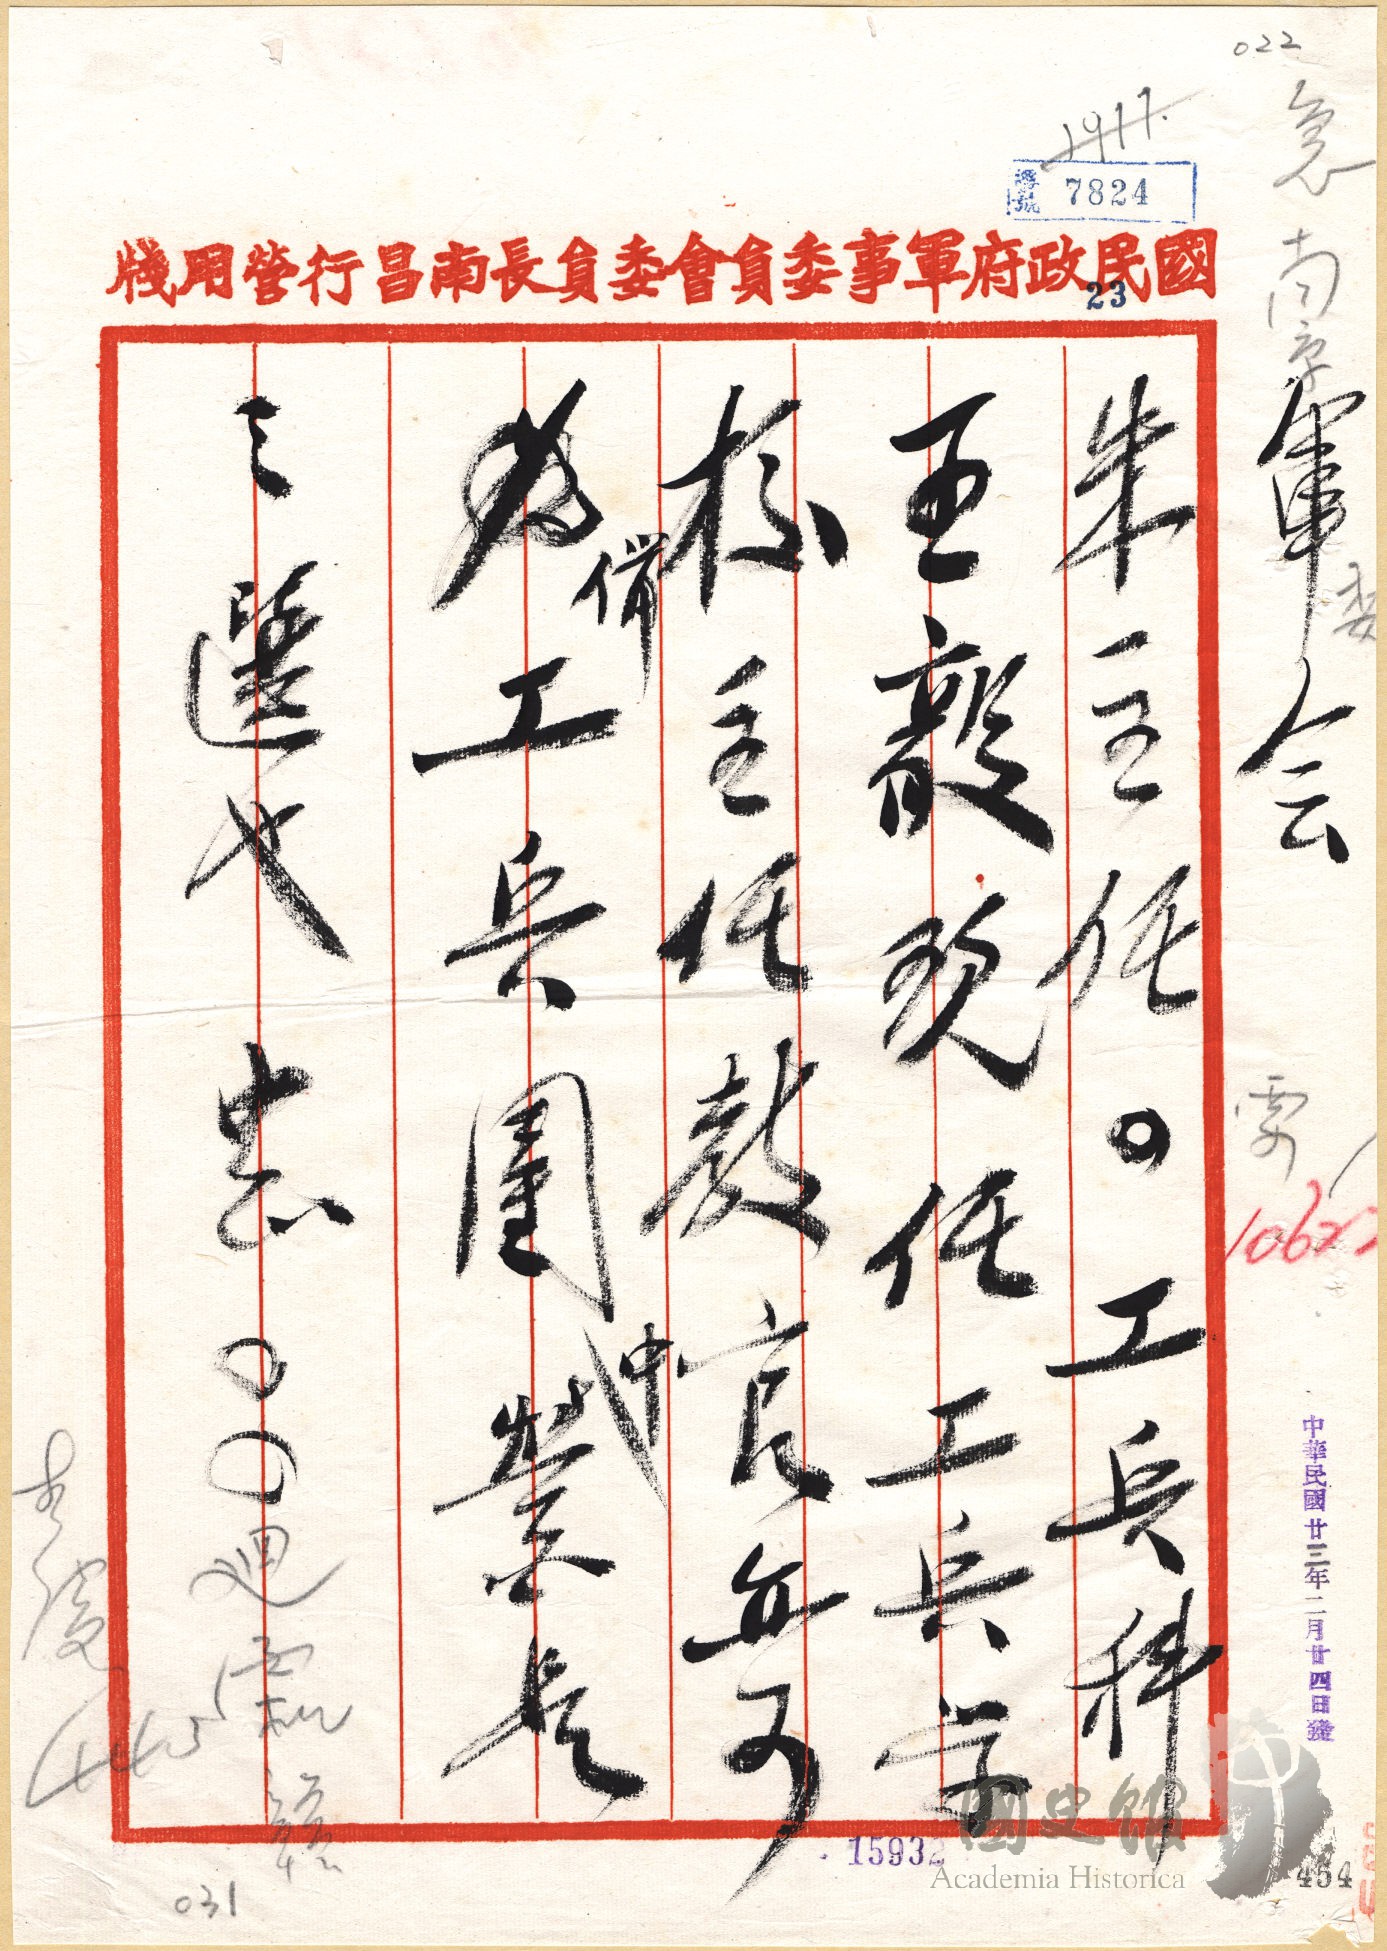 022
急 南京 軍委会
7824
國民政府軍事委員會委員長南昌行營用牋
23
朱主任。工兵科
王現任工兵学
校主任教官可
為備工兵團中營長
之選也 中正
中華民國廿三年二月廿四日發
15932
國史館
Academia Historica
454
031